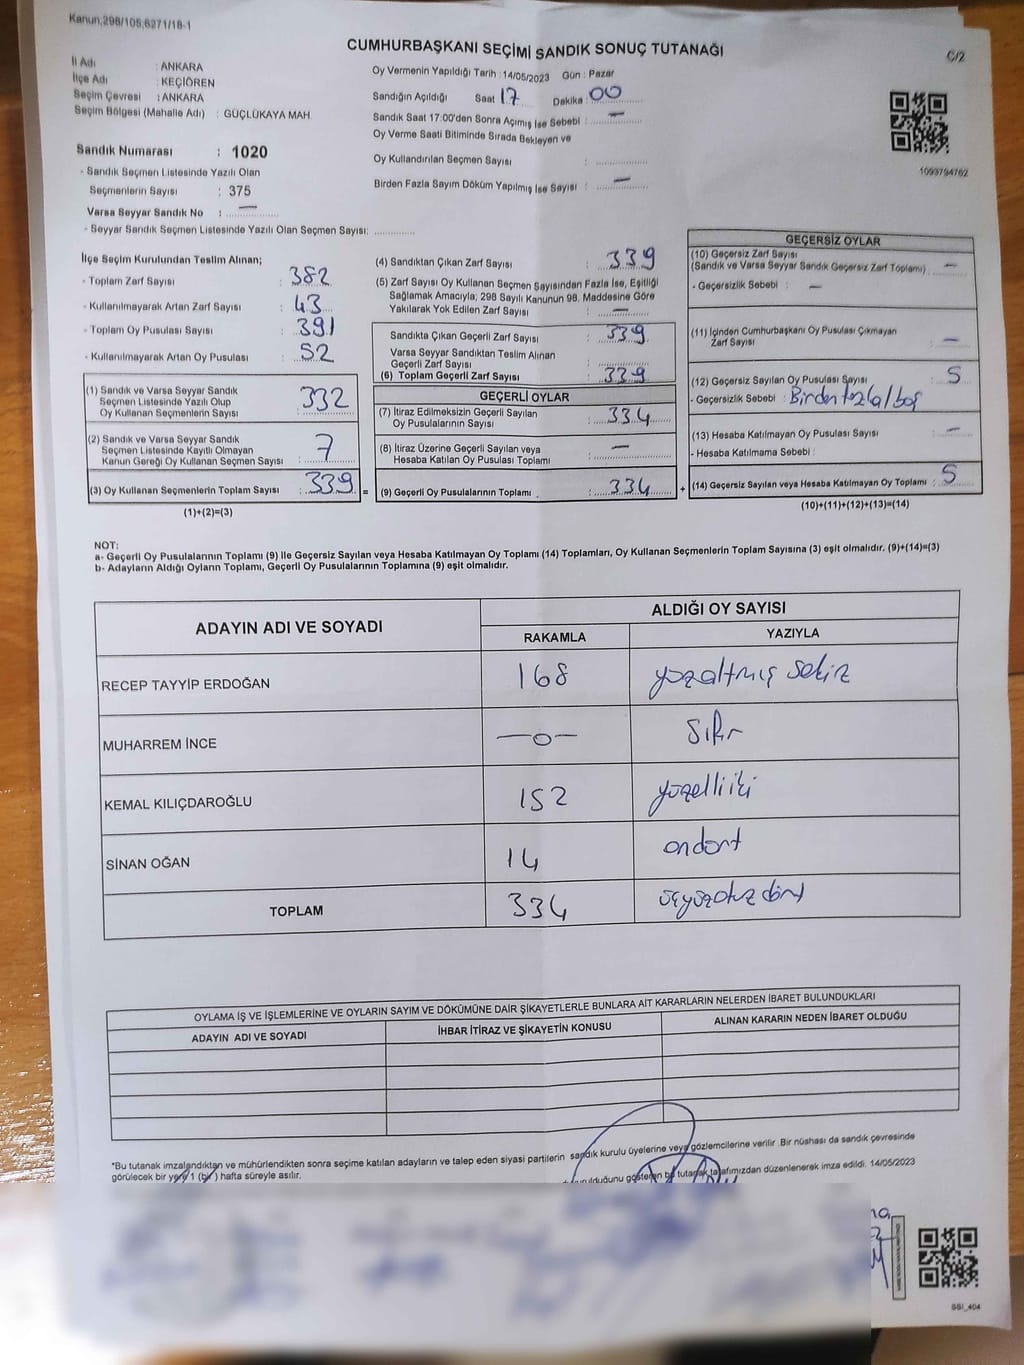 Kanun;298/105;6271/18-1
CUMHURBAŞKANI SEÇİMİ SANDIK SONUÇ TUTANAĞI
C/2
İl Adı : ANKARA
İlçe Adı : KEÇİÖREN
Seçim Çevresi : ANKARA
Seçim Bölgesi (Mahalle Adı) : GÜÇLÜKAYA MAH.
Sandık Numarası : 1020
- Sandık Seçmen Listesinde Yazılı Olan
Seçmenlerin Sayısı : 375
Varsa Seyyar Sandık No : —
- Seyyar Sandık Seçmen Listesinde Yazılı Olan Seçmen Sayısı: ............
Oy Vermenin Yapıldığı Tarih : 14/05/2023 Gün : Pazar
Sandığın Açıldığı Saat 17 Dakika : 00
Sandık Saat 17:00'den Sonra Açımış İse Sebebi : —
Oy Verme Saati Bitiminde Sırada Bekleyen ve
Oy Kullandırılan Seçmen Sayısı : ............
Birden Fazla Sayım Döküm Yapılmış İse Sayısı : —
1093794762
İlçe Seçim Kurulundan Teslim Alınan;
- Toplam Zarf Sayısı : 382
- Kullanılmayarak Artan Zarf Sayısı : 43
- Toplam Oy Pusulası Sayısı : 391
- Kullanılmayarak Artan Oy Pusulası : 52
(1) Sandık ve Varsa Seyyar Sandık
Seçmen Listesinde Yazılı Olup
Oy Kullanan Seçmenlerin Sayısı : 332
(2) Sandık ve Varsa Seyyar Sandık
Seçmen Listesinde Kayıtlı Olmayan
Kanun Gereği Oy Kullanan Seçmen Sayısı : 7
(3) Oy Kullanan Seçmenlerin Toplam Sayısı : 339 =
(1)+(2)=(3)
(4) Sandıktan Çıkan Zarf Sayısı : 339
(5) Zarf Sayısı Oy Kullanan Seçmen Sayısından Fazla İse, Eşitliği
Sağlamak Amacıyla; 298 Sayılı Kanunun 98. Maddesine Göre
Yakılarak Yok Edilen Zarf Sayısı : —
Sandıkta Çıkan Geçerli Zarf Sayısı : 339
Varsa Seyyar Sandıktan Teslim Alınan
Geçerli Zarf Sayısı : ............
(6) Toplam Geçerli Zarf Sayısı : 339
GEÇERLİ OYLAR
(7) İtiraz Edilmeksizin Geçerli Sayılan
Oy Pusulalarının Sayısı : 334
(8) İtiraz Üzerine Geçerli Sayılan veya
Hesaba Katılan Oy Pusulası Toplamı : —
(9) Geçerli Oy Pusulalarının Toplamı : 334 +
GEÇERSİZ OYLAR
(10) Geçersiz Zarf Sayısı
(Sandık ve Varsa Seyyar Sandık Geçersiz Zarf Toplamı) —
- Geçersizlik Sebebi : —
(11) İçinden Cumhurbaşkanı Oy Pusulası Çıkmayan
Zarf Sayısı : —
(12) Geçersiz Sayılan Oy Pusulası Sayısı : 5
- Geçersizlik Sebebi : Birden fazla / boş
(13) Hesaba Katılmayan Oy Pusulası Sayısı : —
- Hesaba Katılmama Sebebi :
(14) Geçersiz Sayılan veya Hesaba Katılmayan Oy Toplamı : 5
(10)+(11)+(12)+(13)=(14)
NOT:
a- Geçerli Oy Pusulalarının Toplamı (9) ile Geçersiz Sayılan veya Hesaba Katılmayan Oy Toplamı (14) Toplamları, Oy Kullanan Seçmenlerin Toplam Sayısına (3) eşit olmalıdır. (9)+(14)=(3)
b- Adayların Aldığı Oyların Toplamı, Geçerli Oy Pusulalarının Toplamına (9) eşit olmalıdır.
ADAYIN ADI VE SOYADI
ALDIĞI OY SAYISI
RAKAMLA YAZIYLA
RECEP TAYYİP ERDOĞAN 168 yüzaltmış sekiz
MUHARREM İNCE —0— sıfır
KEMAL KILIÇDAROĞLU 152 yüzelliiki
SİNAN OĞAN 14 ondört
TOPLAM 334 üçyüzotuz dört
OYLAMA İŞ VE İŞLEMLERİNE VE OYLARIN SAYIM VE DÖKÜMÜNE DAİR ŞİKAYETLERLE BUNLARA AİT KARARLARIN NELERDEN İBARET BULUNDUKLARI
ADAYIN ADI VE SOYADI İHBAR İTİRAZ VE ŞİKAYETİN KONUSU ALINAN KARARIN NEDEN İBARET OLDUĞU
*Bu tutanak imzalandıktan ve mühürlendikten sonra seçime katılan adayların ve talep eden siyasi partilerin sandık kurulu üyelerine veya gözlemcilerine verilir. Bir nüshası da sandık çevresinde
görülecek bir yere 1 (bir) hafta süreyle asılır.
gösteren bu tutanak tarafımızdan düzenlenerek imza edildi. 14/05/2023
SSI_404